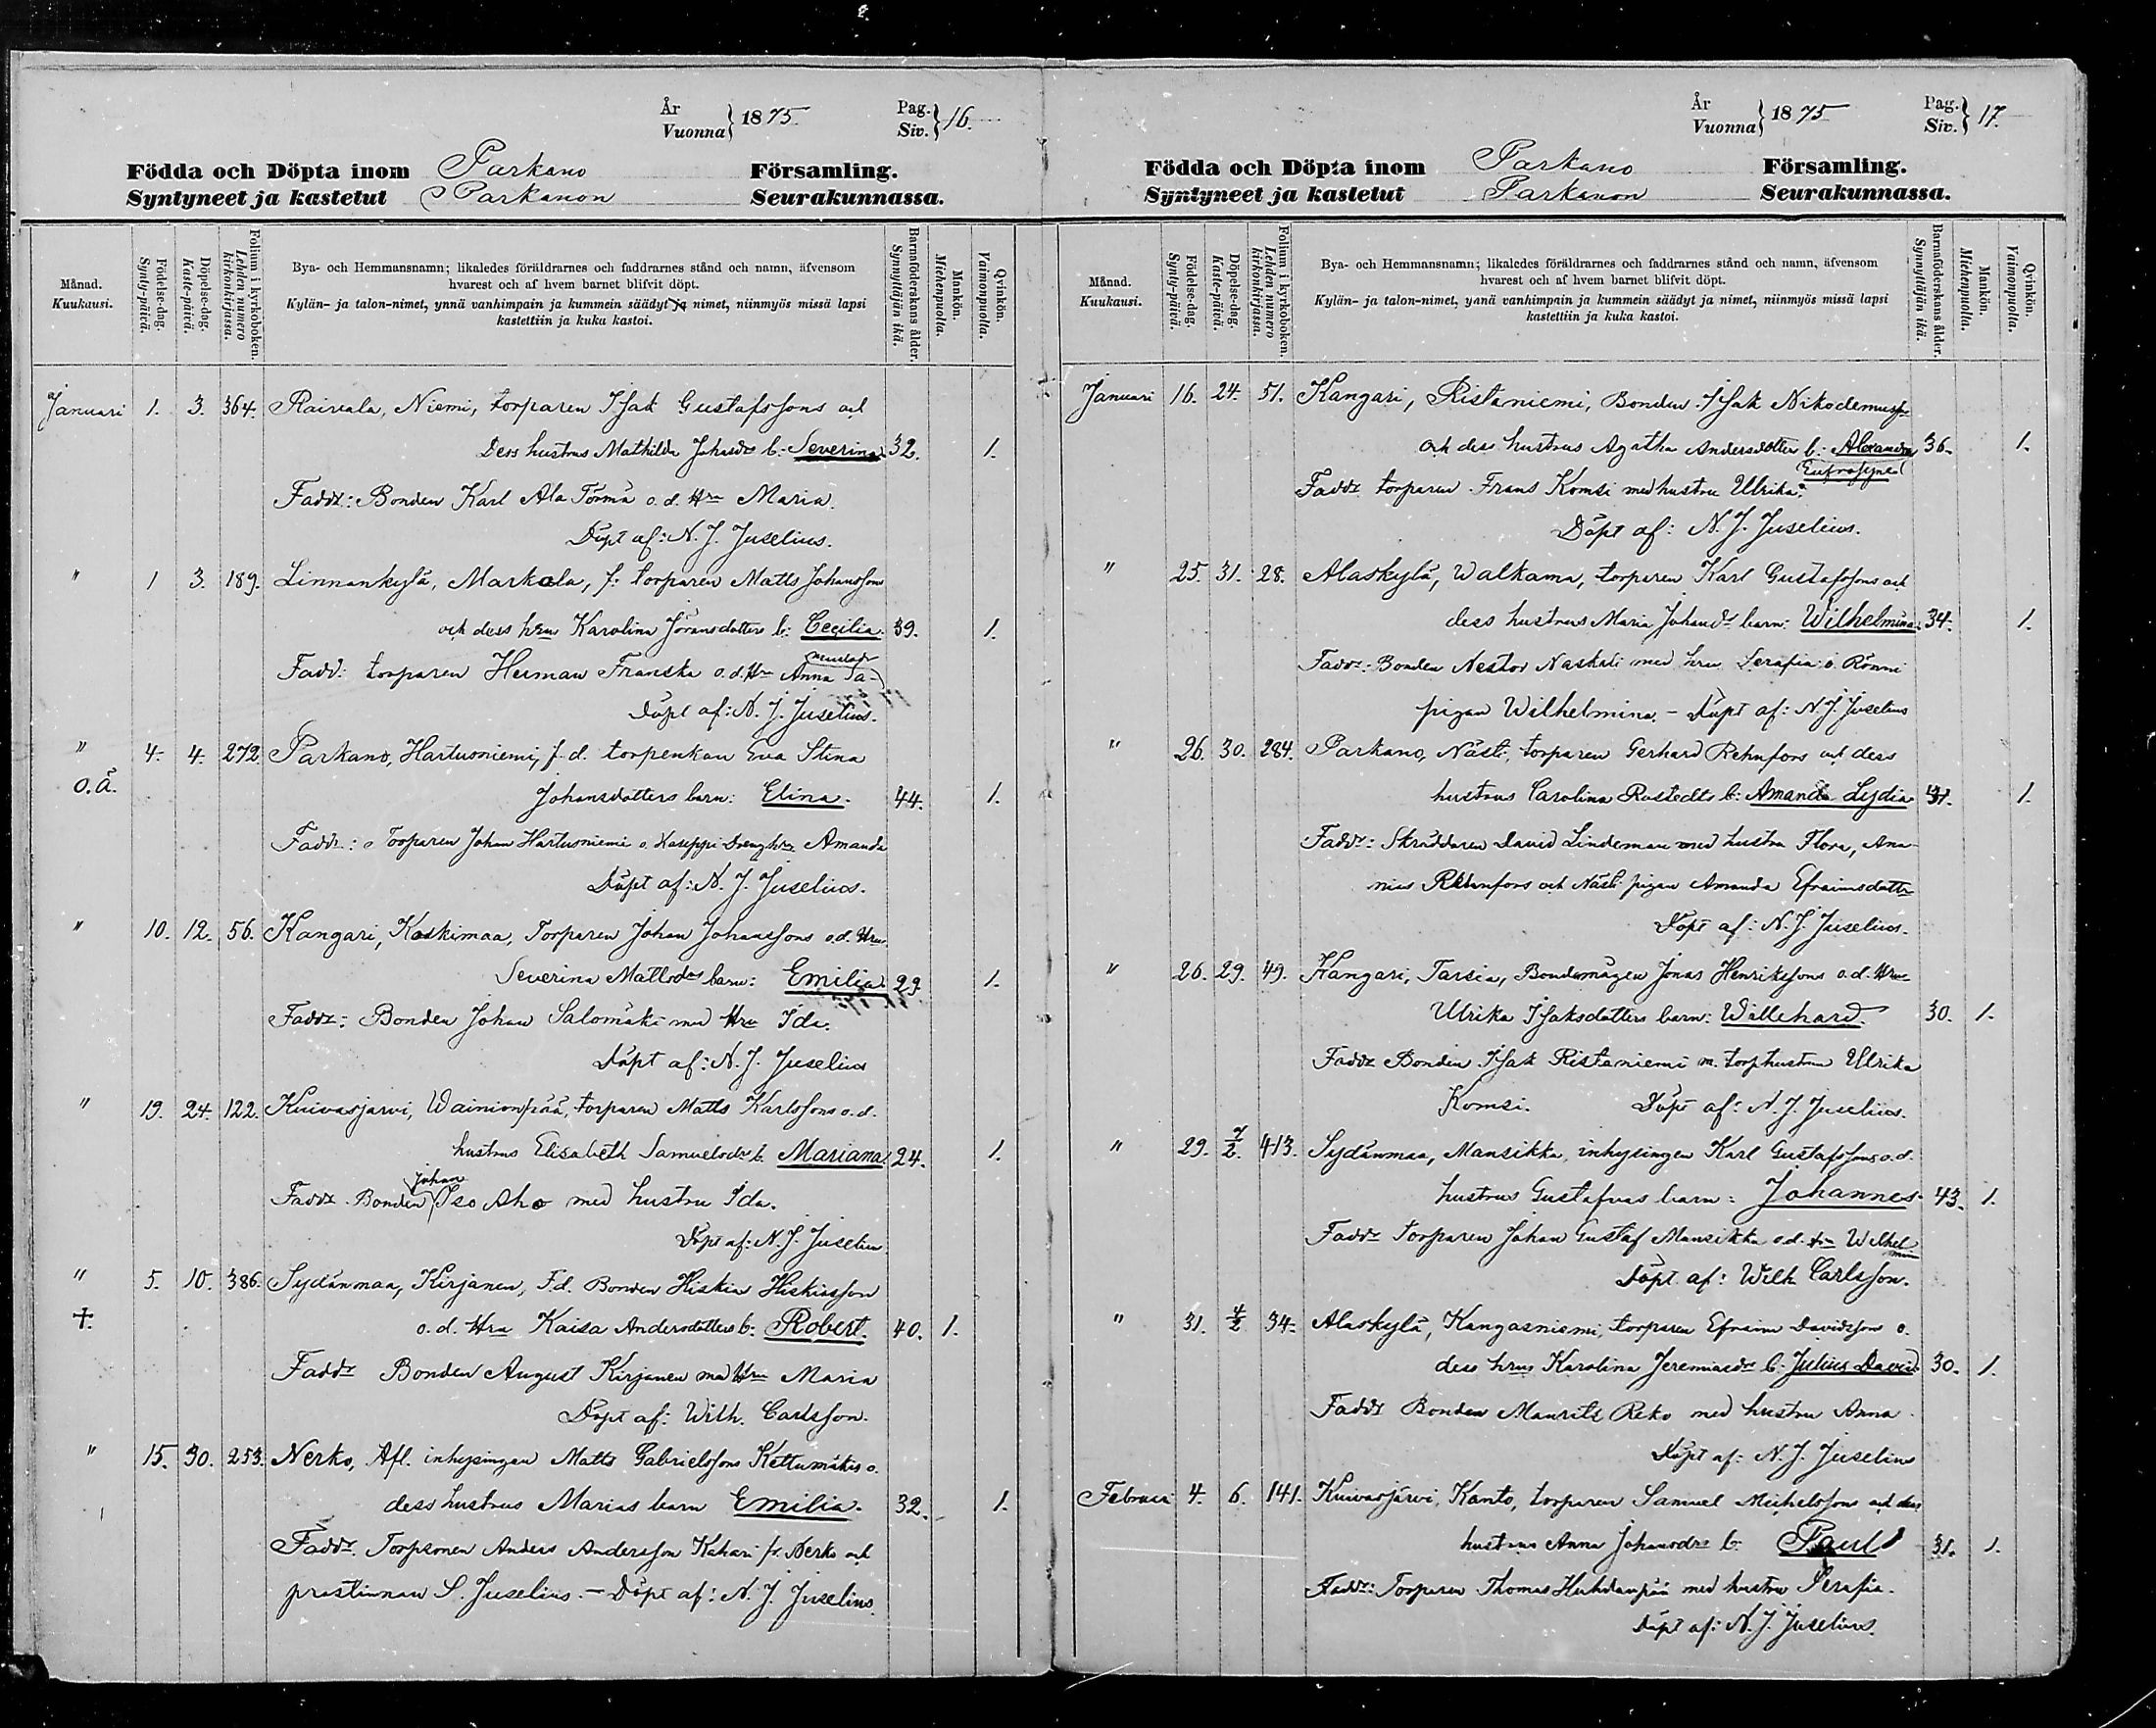 År
Vuonna } 1875
Pag.
Siv. } 16.
Födda och Döpta inom Parkano Församling.
Syntyneet ja kastetut Parkanon Seurakunnassa.
Månad.
Kuukausi.
Födelse-dag.
Synty-päivä.
Döpelse-dag.
Kaste-päivä.
Folium i kyrkoboken.
Lehden numero kirkonkirjassa.
Bya- och Hemmansnamn; likaledes föräldrarnes och faddrarnes stånd och namn, äfvensom
hvarest och af hvem barnet blifvit döpt.
Kylän- ja talon-nimet, ynnä vanhimpain ja kummein säädyt ja nimet, niinmyös missä lapsi
kastettiin ja kuka kastoi.
Barnaföderskans ålder.
Synnyttäjän ikä.
Mankön.
Miehenpuolla.
Qvinkön.
Vaimonpuolla.
Januari 1. 3. 364. Raivala, Niemi, torparen Isak Gustafssons och
Dess hustrus Mathilda Johansdr b: Severina 32. 1.
Faddr: Bonden Karl Ala Törmä o. d. Hru Maria.
Döpt af: N. J. Juselius.
" 1 3. 189. Linnankylä, Markola, f: torparen Matts Johansson
och dess hrus Karolina Göransdotters b: Cecilia. 39. 1.
Fadd: torparen Herman Franska o. d. Hru Anna
Döpt af: N. J. Juselius.
" 4. 4. 272 Parkano, Hartusniemi, f. d. torpenkan Eva Stina
o. ä. Johansdotters barn: Elina. 44. 1.
Faddr: Torparen Johan Hartusniemi o. Kaseppi Drenghru Amanda
Döpt af: N. J. Juselius.
" 10. 12. 56. Kangari, Koskimaa, Torparen Johan Johanssons o. d. Hrus
Severina Mattsdrs barn: Emilia. 29. 1.
Faddr: Bonden Johan Salomäki med Hru Ida.
Döpt af: N. J. Juselius
" 19. 24. 122. Kuivasjärvi, Wainionpää, torparen Matts Karlssons o. d.
hustrus Elisabeth Samuelsdr b. Mariana. 24. 1.
Johan
Faddr. Bonden Iso Aho med hustru Ida.
Döpt af: N. J. Juselius
" 5. 10. 386. Sydänmaa, Kirjanen, F.d. Bonden Hiskia Hiskiasson
†. o. d. Hru Kaisa Andersdotters b: Robert. 40. 1.
Faddr Bonden August Kirjanen med Hru Maria
Döpt af: Wilh. Carlsson.
" 15. 30. 253. Nerko, Afl. inhysingen Matts Gabrielssons Kettumäkis o.
dess hustrus Marias barn Emilia. 32. 1.
Faddr. Torpsonen Anders Andersson Kahari fr. Nerko och
prostinnan S. Juselius. – Döpt af: N. J. Juselius.
År
Vuonna } 1875
Pag.
Siv. } 17.
Födda och Döpta inom Parkano Församling.
Syntyneet ja kastetut Parkanon Seurakunnassa.
Månad.
Kuukausi.
Födelse-dag.
Synty-päivä.
Döpelse-dag.
Kaste-päivä.
Folium i kyrkoboken.
Lehden numero kirkonkirjassa.
Bya- och Hemmansnamn; likaledes föräldrarnes och faddrarnes stånd och namn, äfvensom
hvarest och af hvem barnet blifvit döpt.
Kylän- ja talon-nimet, ynnä vanhimpain ja kummein säädyt ja nimet, niinmyös missä lapsi
kastettiin ja kuka kastoi.
Barnaföderskans ålder.
Synnyttäjän ikä.
Mankön.
Miehenpuolla.
Qvinkön.
Vaimonpuolla.
Januari 16. 24. 51. Kangari, Ristaniemi, Bonden Isak Nikodemuss
och dess hustrus Agatha Andersdotters b: Alexandra 36. 1.
Eufrosyne
Faddr torparen Frans Komsi med hustru Ulrika.
Döpt af: N. J. Juselius.
" 25. 31. 28. Alaskylä, Walkama, torparen Karl Gustafssons och
dess hustrus Maria Johansdr barn: Wilhelmina. 34. 1.
Faddr: Bonden Nestor Naskali med hru Serafia o. Rönni
pigan Wilhelmina. – Döpt af: N. J. Juselius
" 26. 30. 284. Parkano, Nästi, torparen Gerhard Rehnfors och dess
hustrus Carolina Rostedts b: Amanda Lydia 1.
Faddr: Skräddaren David Lindeman med hustru Flora, Ana-
nias Rehnfors och Nästi pigan Amanda Efraimsdotter
Döpt af: N. J. Juselius.
" 26. 29. 49. Kangari, Tarsia, Bondemågen Jonas Henrikssons o. d. Hrus
Ulrika Isaksdotters barn: Willehard. 30. 1.
Faddr Bonden Isak Ristaniemi m. torphustrun Ulrika
Komsi. Döpt af: N. J. Juselius.
" 29. 7/2. 413. Sydänmaa, Mansikka, inhysingen Karl Gustafssons o. d.
hustrus Gustafvas barn: Johannes. 43. 1.
Faddr Torparen Johan Gustaf Mansikka o. d. hru Wilhel
mina
Döpt af: Wilh Carlsson.
" 31. 4/2 34. Alaskylä, Kangasniemi, torparen Efraim Davidssons o.
dess hrus Karolina Jeremiasdr b. Julius David. 30. 1.
Faddr Bonden Maurits Reko med hustru Anna.
Döpt af: N. J. Juselius
Februari 4. 6. 141. Kuivasjärvi, Kanto, torparen Samuel Michelssons och dess
hustrus Anna Johansdrs b: Paul 31. 1.
Faddr: Torparen Thomas Huhdanpää med hustru Serafia.
Döpt af: N. J. Juselius.